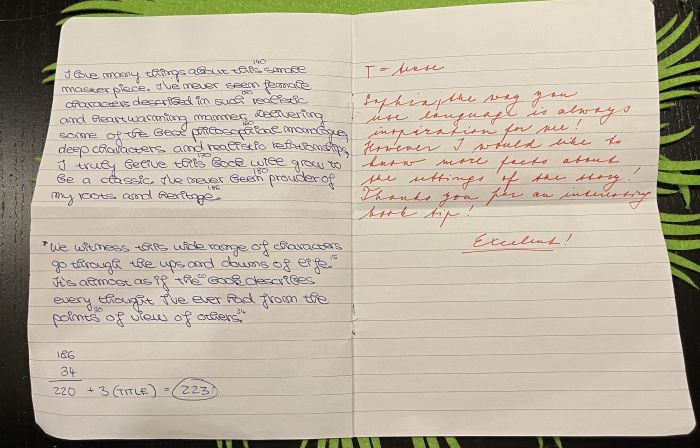 I love many things about this 140 simple
masterpiece. I've never seen female
characters described in such realistic
and heartwarming manner. Delivering
some of the best philosophical monologues,
deep characters and realistic relationships,
I truly belive this 170 book will grow to
be a classic. I've never been 180 prouder of
my roots and heritage. 186
*We witness this wide range of characters
go through the ups and downs of life. 15
It's almost as if the 20 book describes
every thought I've ever had from the
points 30 of view of others. 34
186
34
220 + 3 (TITLE) = 223
T = tense
Sophia, the way you
use language is always
inspiration for me!
However I would like to
know more facts about
the settings of the story!
Thanks you for an interesting
book tip!
Excelent!